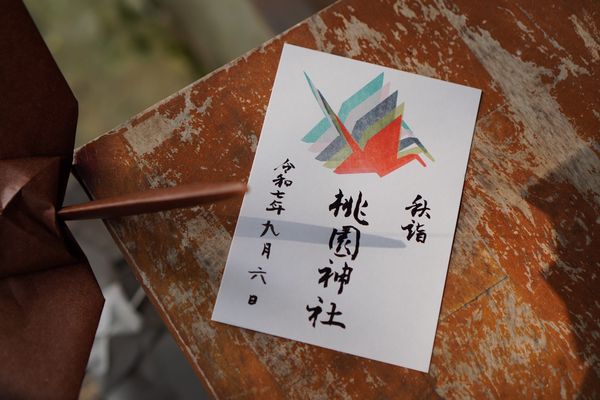 秋詣
桃園神社
令和七年九月六日